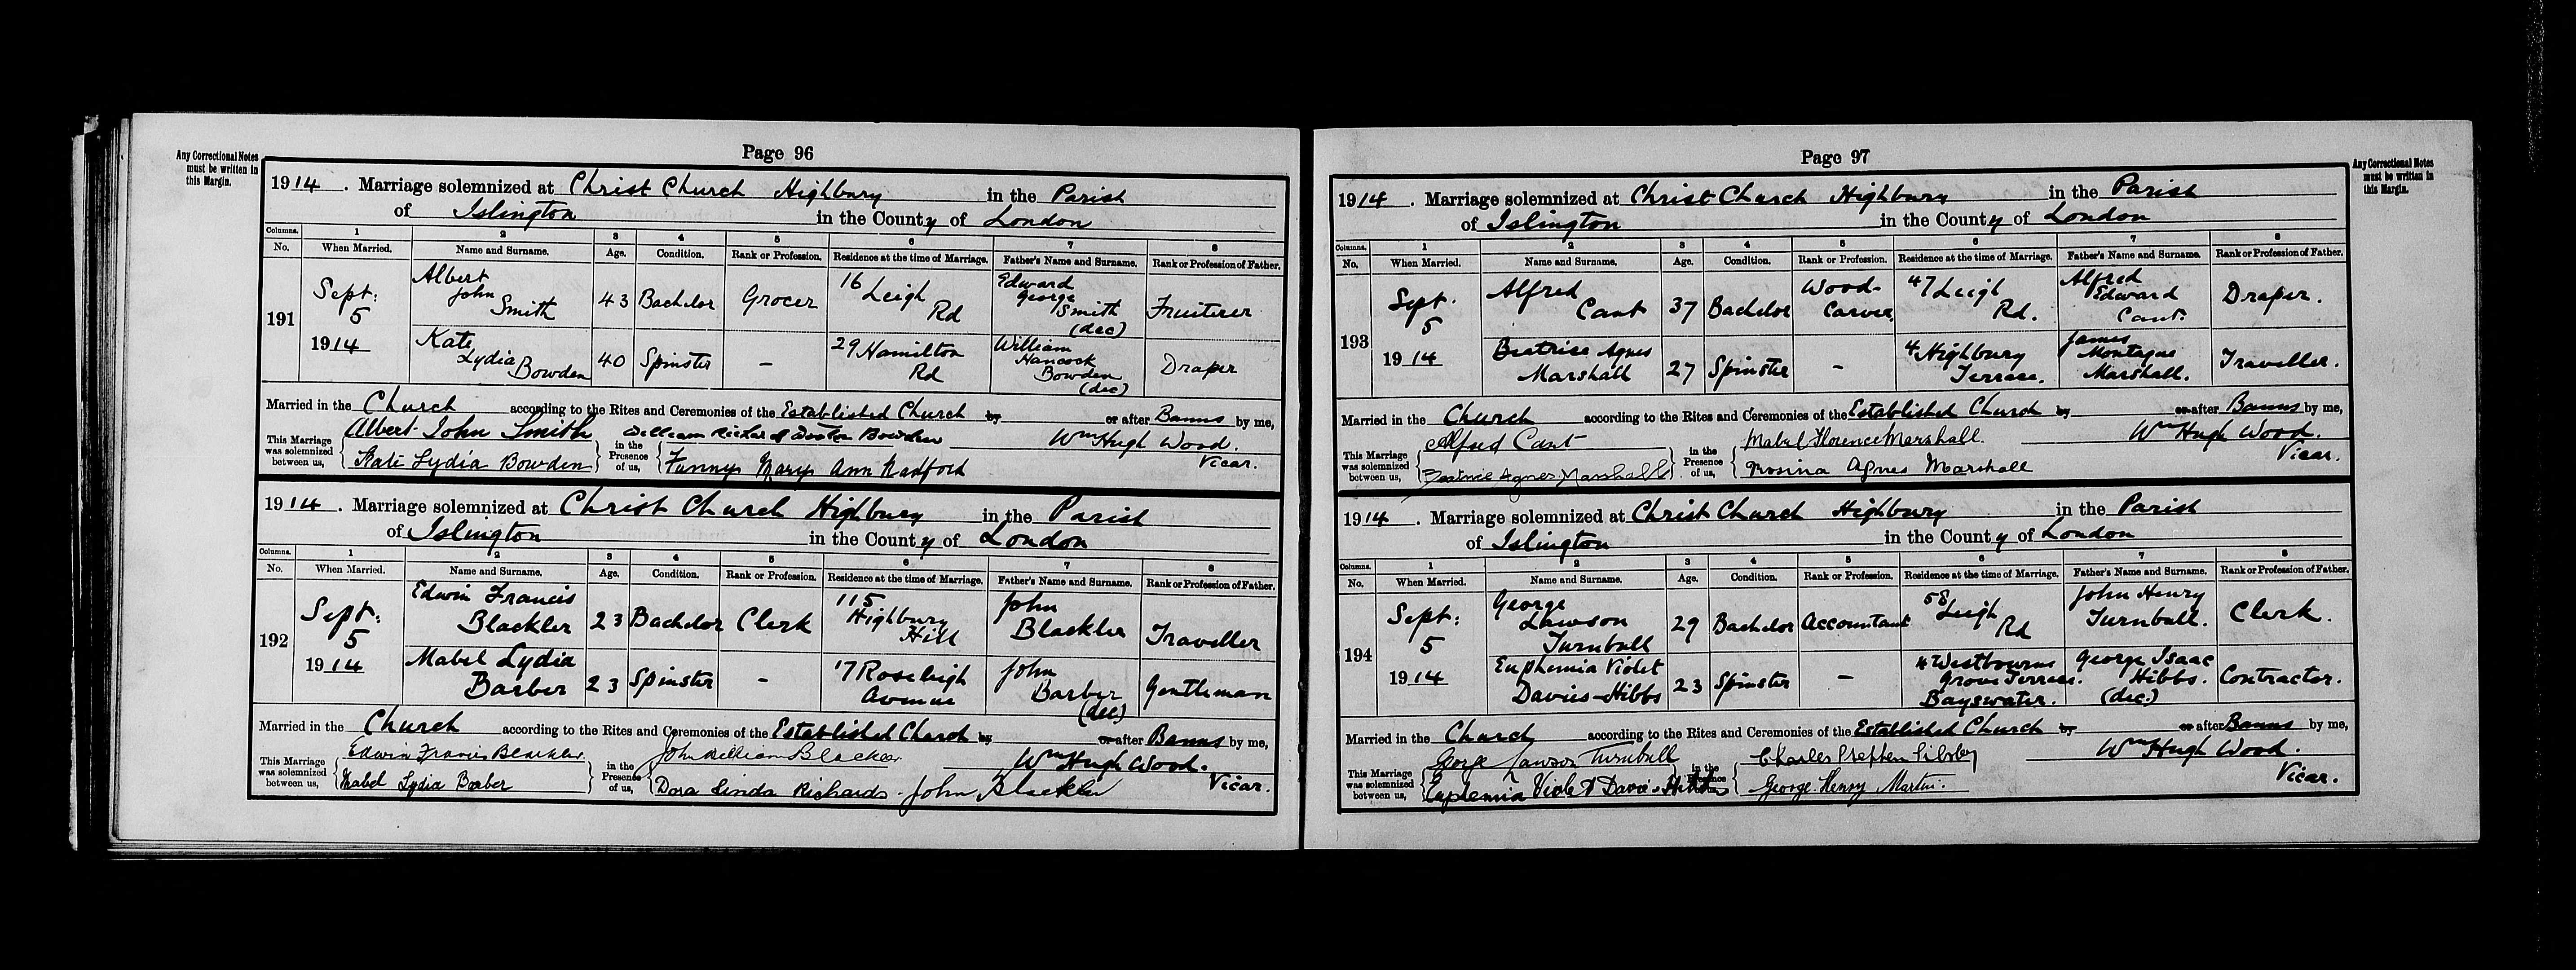 Page 96
Any Correctional Notes
must be written in
this Margin.
1914. Marriage solemnized at Christ Church Highbury in the Parish
of Islington in the County of London
Columns. 1 2 3 4 5 6 7 8
No. When Married. Name and Surname. Age. Condition. Rank or Profession. Residence at the time of Marriage. Father's Name and Surname. Rank or Profession of Father.
191 Sept: 5 1914
Albert John Smith 43 Bachelor Grocer 16 Leigh Rd Edward George Smith (dec) Fruiterer
Kate Lydia Bowden 40 Spinster - 29 Hamilton Rd William Hancock Bowden (dec) Draper
Married in the Church according to the Rites and Ceremonies of the Established Church by or after Banns by me,
This Marriage was solemnized between us, Albert John Smith Kate Lydia Bowden in the Presence of us, William Richard Bowden Fanny Mary Ann Radford Wm Hugh Wood. Vicar.
1914. Marriage solemnized at Christ Church Highbury in the Parish
of Islington in the County of London
Columns. 1 2 3 4 5 6 7 8
No. When Married. Name and Surname. Age. Condition. Rank or Profession. Residence at the time of Marriage. Father's Name and Surname. Rank or Profession of Father.
192 Sept: 5 1914
Edwin Francis Blackler 23 Bachelor Clerk 115 Highbury Hill John Blackler Traveller
Mabel Lydia Barber 23 Spinster - 17 Roseleigh Avenue John Barber (dec) Gentleman
Married in the Church according to the Rites and Ceremonies of the Established Church by or after Banns by me,
This Marriage was solemnized between us, Edwin Francis Blackler Mabel Lydia Barber in the Presence of us, John William Blackler Dora Linda Richards John Blackler Wm Hugh Wood. Vicar.
Page 97
Any Correctional Notes
must be written in
this Margin.
1914. Marriage solemnized at Christ Church Highbury in the Parish
of Islington in the County of London
Columns. 1 2 3 4 5 6 7 8
No. When Married. Name and Surname. Age. Condition. Rank or Profession. Residence at the time of Marriage. Father's Name and Surname. Rank or Profession of Father.
193 Sept. 5 1914
Alfred Cant 37 Bachelor Wood-Carver 47 Leigh Rd. Alfred Edward Cant. Draper.
Beatrice Agnes Marshall 27 Spinster - 4 Highbury Terrace. James Montague Marshall. Traveller.
Married in the Church according to the Rites and Ceremonies of the Established Church by or after Banns by me,
This Marriage was solemnized between us, Alfred Cant Beatrice Agnes Marshall in the Presence of us, Mabel Florence Marshall. Rosina Agnes Marshall Wm Hugh Wood. Vicar.
1914. Marriage solemnized at Christ Church Highbury in the Parish
of Islington in the County of London
Columns. 1 2 3 4 5 6 7 8
No. When Married. Name and Surname. Age. Condition. Rank or Profession. Residence at the time of Marriage. Father's Name and Surname. Rank or Profession of Father.
194 Sept: 5 1914
George Lawson Turnbull 29 Bachelor Accountant 58 Leigh Rd John Henry Turnbull. Clerk.
Euphemia Violet Davies-Hibbs 23 Spinster - 4 Westbourne Grove Terrace. Bayswater. George Isaac Hibbs. (dec.) Contractor.
Married in the Church according to the Rites and Ceremonies of the Established Church by or after Banns by me,
This Marriage was solemnized between us, George Lawson Turnbull Euphemia Violet Davies-Hibbs in the Presence of us, Charles Stephen George Henry Martin. Wm Hugh Wood. Vicar.